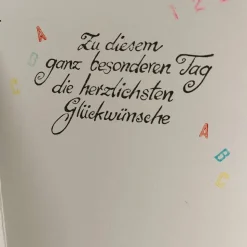 1 2 3
Zu diesem
ganz besonderen Tag
die herzlichsten
Glückwünsche
A
B
C
D
A
B
C